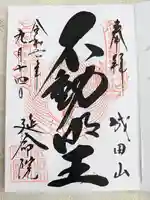 奉拝
成田山
不動明王
令和二年
九月十四日
延命院